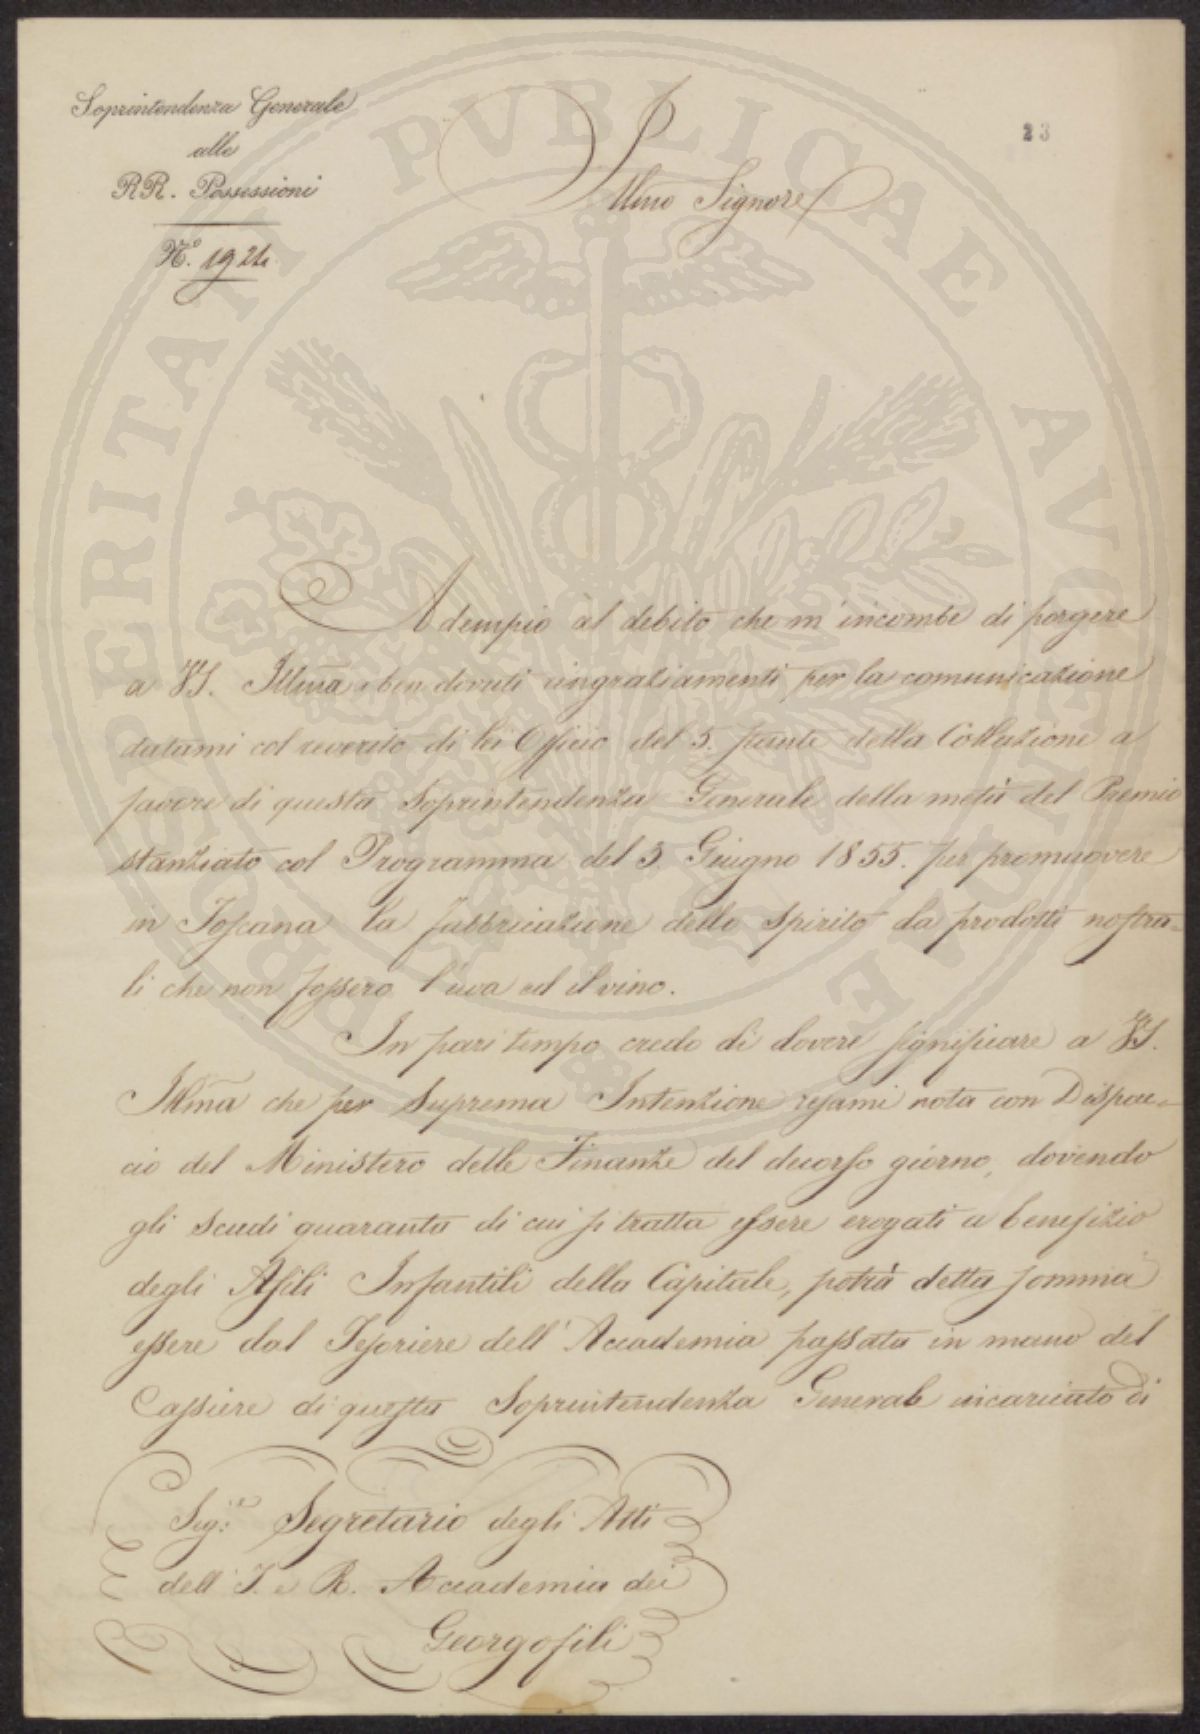 Soprintendenza Generale
alle
RR. Possessioni
N.° 1924
23
Illmo Signore
Adempio al debito che m'incombe di porgere
a VS. Illma i ben dovuti ringraziamenti per la comunicazione
datami col reverito di lei Officio del 5. pnte della Collazione a
favore di questa Soprintendenza Generale della metà del Premio
stanziato col Programma del 3. Giugno 1855. per promuovere
in Toscana la fabbricazione dello Spirito da prodotti nostra-
li che non fossero l'uva ed il vino.
In pari tempo credo di dovere significare a VS.
Illma che per Suprema Intenzione resami nota con Dispac-
cio del Ministero delle Finanze del decorso giorno, dovendo
gli Scudi quaranta di cui si tratta essere erogati a benefizio
degli Asili Infantili della Capitale, potrà detta somma
essere dal Tesoriere dell'Accademia passata in mano del
Cassiere di questa Soprintendenza Generale incaricato di
Sig.r Segretario degli Atti
dell'I. e R. Accademia dei
Georgofili
PROSPERITATI PVBLICAE AVGENDAE